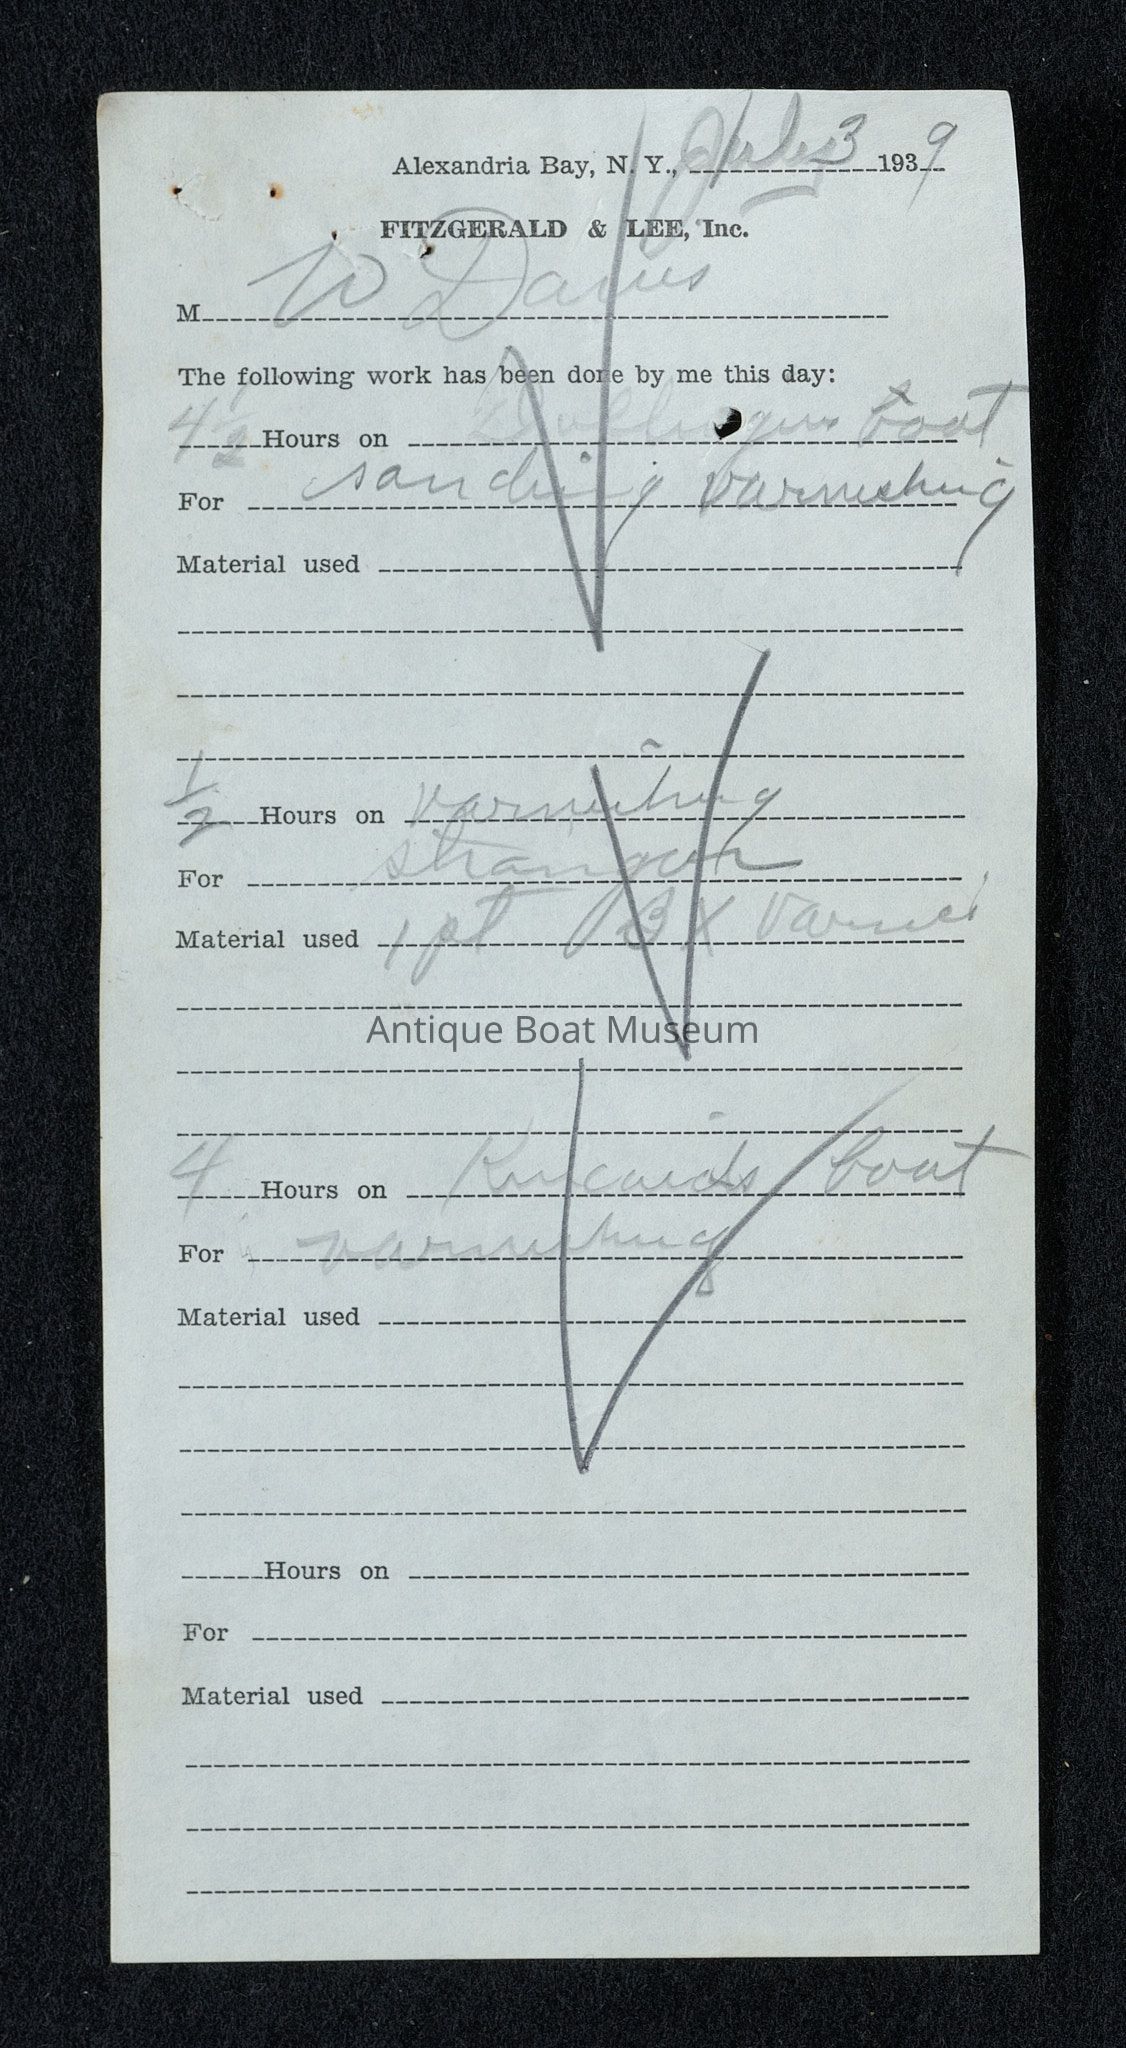 Alexandria Bay, N. Y., July 3 1939
FITZGERALD & LEE, Inc.
M W Davis
The following work has been done by me this day:
4 1/2 Hours on boat
For sanding varnishing
Material used
1/2 Hours on varnishing
For
Material used 1 pt
Antique Boat Museum
4 Hours on Kincaids boat
For varnishing
Material used
Hours on
For
Material used